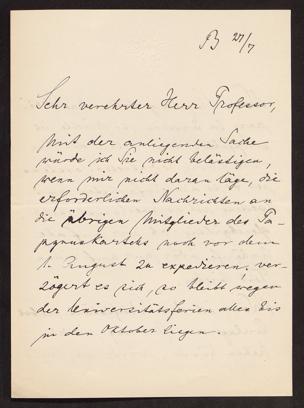 B 27/7
Sehr verehrter Herr Professor,
Mit der anliegenden Sache
würde ich Sie nicht belästigen,
wenn mir nicht daran läge, die
erforderlichen Nachrichten an
die übrigen Mitglieder des Pa-
pyruskartells noch vor dem
1. August zu expedieren; ver-
zögert es sich, so bleibt wegen
der Universitätsferien alles bis
in den Oktober liegen.